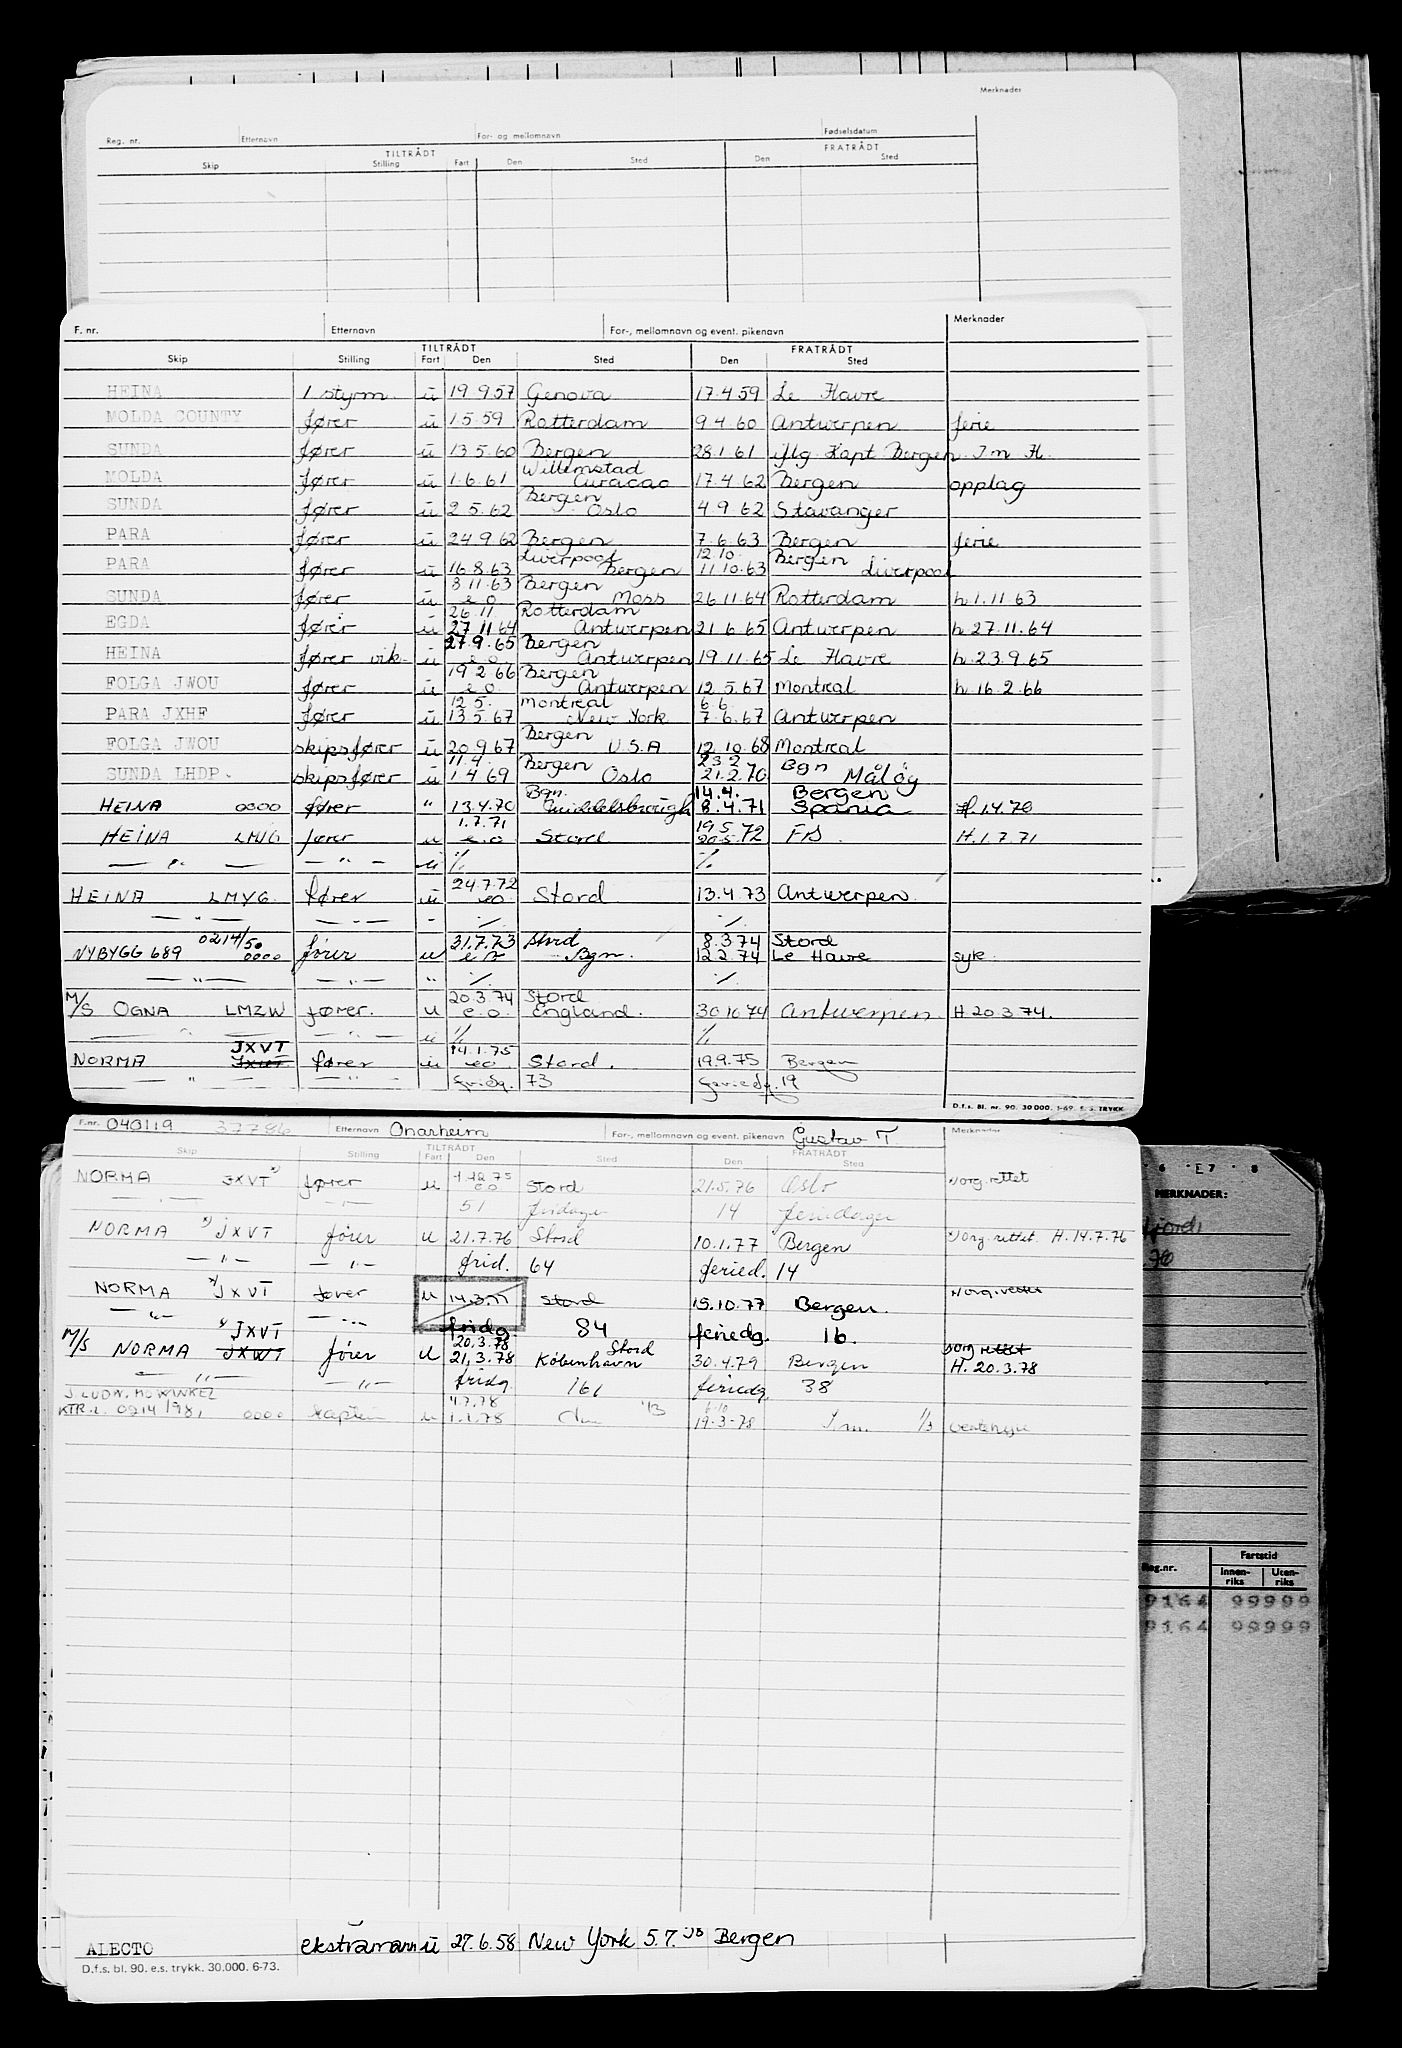 Merknader
Reg. nr. Etternavn For- og mellomnavn Fødselsdatum
TILTRÅDT FRATRÅDT
Skip Stilling Fart Den Sted Den Sted
F. nr. Etternavn For-, mellomnavn og event. pikenavn Merknader
TILTRÅDT FRATRÅDT
Skip Stilling Fart Den Sted Den Sted
HEINA 1 styrm. u 19 9.57 Genova 17.4.59 Le Havre
MOLDA COUNTY fører u 1.5.59 Rotterdam 9.4.60 Antwerpen ferie
SUNDA fører u 13.5.60 Bergen 28.1.61 iflg. Kapt. Bergen I.m. H.
Willemstad
MOLDA fører u 1.6.61 Curacao 17.4.62 Bergen opplag
Bergen
SUNDA fører u 2.5.62 Oslo 4.9.62 Stavanger
PARA fører u 24.9.62 Bergen 7.6.63 Bergen ferie
Liverpool 12.10. Bergen
PARA fører u 16.8.63 Bergen 11.10.63 Liverpool
8.11.63 Bergen
SUNDA fører u e.o. Moss 26.11.64 Rotterdam h 1.11.63
26.11. Rotterdam
EGDA fører u 27.11.64 Antwerpen 21.6.65 Antwerpen h 27.11.64
27.9.65 Bergen
HEINA fører vik. u e.o. Antwerpen 19.11.65 Le Havre h. 23.9.65
19.2.66 Bergen
FOLGA JWOU fører u e.o. Antwerpen 12.5.67 Montreal h. 16.2.66
12.5. Montreal 6.6.
PARA JXHF fører u 13.5.67 New York 7.6.67 Antwerpen
Bergen
FOLGA JWOU skipsfører u 20.9.67 U.S.A 12.10.68 Montreal
11.4. Bergen 23.2. Bgn
SUNDA LHDP. skipsfører u 1.4.69 Oslo 21.2.70 Måløy
Bgn. 14.4. Bergen
HEINA 0000 fører " 13.4.70 Middelsbrough 8.4.71 Spania H.1.4.70
1.7.71 19.5.
HEINA LMYG fører u e.o Stord 20.5.72 FIS. H.1.7.71
— " — — " — u % %
24.7.72
HEINA LMYG. fører u eo Stord 13.4.73 Antwerpen.
— " — — " — - % %
0214/50 31.7.73 Stord 8.3.74 Stord
NYBYGG 689 0000 fører u e.o Bgn. 12.2.74 Le Havre syk.
— " — — " — " % %
20.3.74 Stord
M/S OGNA LMZW fører. u e.o. England. 30.10.74 Antwerpen H 20.3.74.
— " — u % %
JXVT 14.1.75
NORMA fører u eo Stord. 19.9.75 Bergen
— " — — " — fridg. 73 feriedg. 19
D.f.s. Bl. nr. 90. 30 000. 1-69. E. S. TRYKK
F.nr. 040119 37786 Etternavn Onarheim For-, mellomnavn og event. pikenavn Gustav T. Merknader
TILTRÅDT FRATRÅDT
Skip Stilling Fart Den Sted Den Sted
NORMA JXVT *) fører u 1.12.75 e o Stord 21.5.76 Oslo *) org. rettet
— " — — " — 51 fridager 14 feriedager
NORMA *) JXVT fører u 21.7.76 Stord 10.1.77 Bergen *) org. rettet. H. 14.7.76
— " — — " — frid. 64 feried. 14
NORMA *) JXVT fører u 14.3.77 Stord 15.10.77 Bergen. *) org. rettet
— " — — " — fridg. 84 feriedg. 16.
*) JXVT 20.3.78 Stord *) org rettet
M/S NORMA JXWT fører u 21.3.78 København 30.4.79 Bergen H. 20.3.78
— " — — " — fridg. 161 feriedg 38
J. LUDW. MOWINKEL 4.7.78 6.10
KTR.L. 0214/98, 0000 kaptein u 1.1.78 19-3-78 I m. 1/3
ALECTO ekstramann u 27.6.58 New York 5.7.58 Bergen
D.f.s. bl. 90. e.s. trykk. 30.000. 6-73.
6 7 8
MERKNADER:
fjord,
70
Reg.nr. Fartstid
Innen-riks Uten-riks
9164 99999
9164 99999